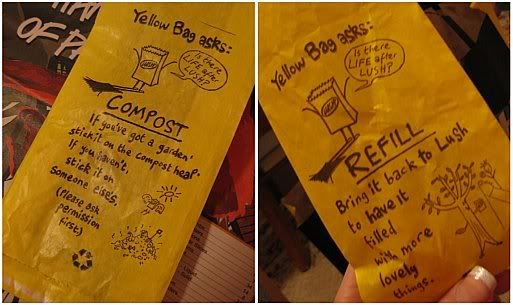 Yellow Bag asks:
Is there
LIFE after
LUSH?
LUSH
COMPOST
If you've got a garden,
stick it on the compost heap.
If you haven't,
stick it on
someone else's.
(Please ask
permission
first)
Yellow Bag asks:
Is there
LIFE after
LUSH?
REFILL
Bring it back to Lush
to have it
filled
with more
lovely
things.